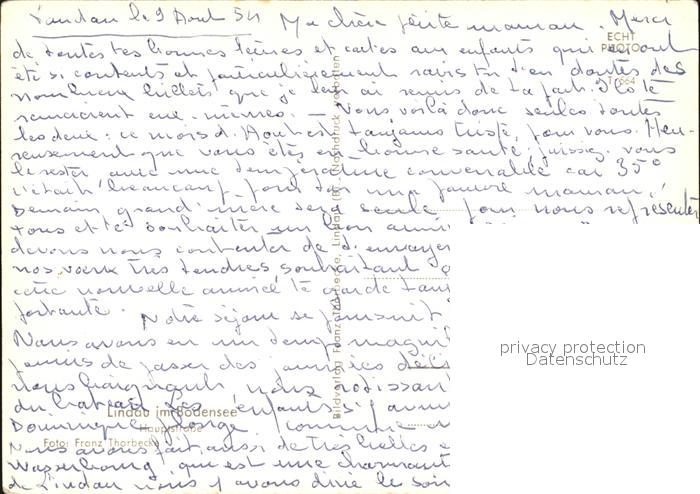 Landau le 9 Août 54 Ma chère petite maman. Merci
de toutes tes bonnes lettres et cartes aux enfants qui en ont
été si contents et particulièrement ravis tu t'en doutes des
nombreux billets que je leur ai remis de ta part. Ils te
remercient eux-mêmes. – Vous voilà donc seules toutes
les deux : ce mois d'Août est toujours triste pour vous. Heu-
reusement que vous êtes en bonne santé, puissiez vous
le rester avec une température convenable car 35°
c'était beaucoup pour toi ma pauvre maman !
Demain grand'mère sera seule pour nous représenter
tous et te souhaiter un bon anni
devons nous contenter de t'envoyer
nos vœux très tendres souhaitant
cette nouvelle année te garde
portante. Notre séjour se poursuit
Nous avons eu un temps magni
permis de passer des journées
nous baignant, nous
du bateau Les enfants
Dominique plonge comme
Nous avons fait aussi de très belles
Wasserbourg qui est une charmant
de Lindau nous y avons dîné le soir
ECHT
PHOTO
664
Bildverlag Franz Thorbecke, Lindau (B) Nachdruck verboten
Lindau im Bodensee
Hauptstraße
Foto: Franz Thorbecke
privacy protection
Datenschutz